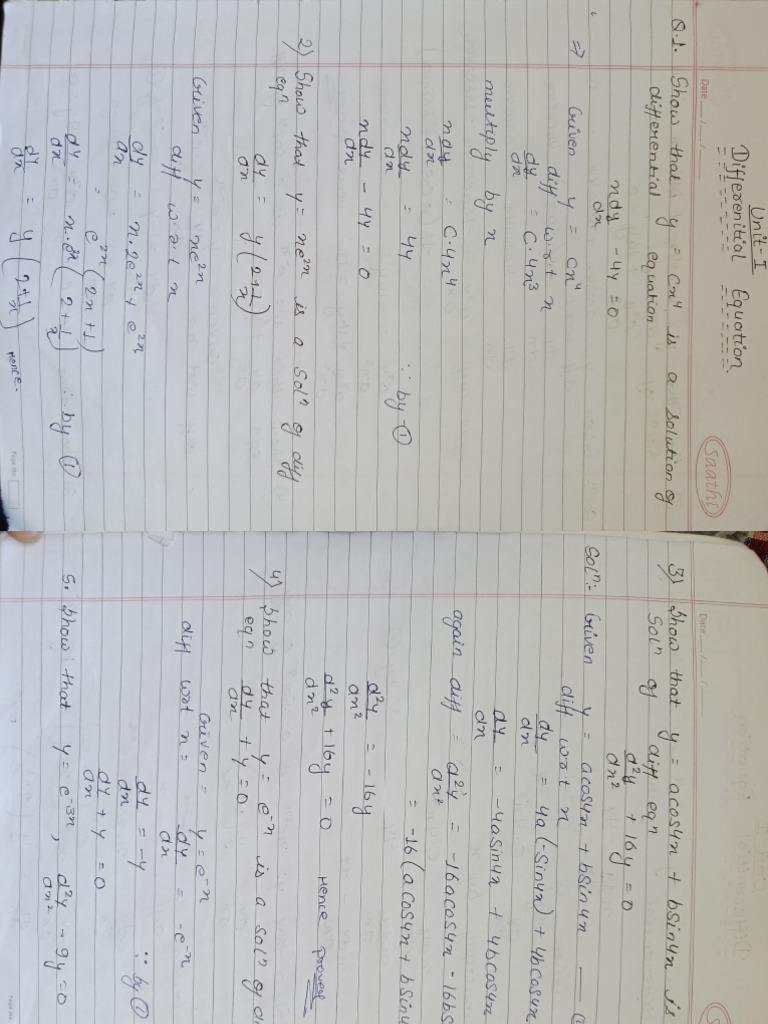 Unit-I
Differenitial Equation
saathi
Date __/__/__
Q.1. Show that y = cx⁴ is a solution of
differential equation
xdy/dx - 4y = 0
⇒ Given y = cx⁴
diff w.r.t x
dy/dx = C.4x³
multiply by x
xdy/dx = C.4x⁴
xdy/dx = 4y ∵ by ①
xdy/dx - 4y = 0
2) Show that y = xe²ˣ is a solⁿ of diff
eqⁿ
dy/dx = y(2+1/x)
Given y = xe²ˣ
diff w.r.t x
dy/dx = x.2e²ˣ + e²ˣ
= e²ˣ(2x+1)
dy/dx = x.e²ˣ(2+1/x) ∴ by ①
dy/dx = y(2+1/x) Hence.
Page No.
Date __/__/__
3) Show that y = acos4x + bsin4x is
Solⁿ of diff eqⁿ
d²y/dx² + 16y = 0
Solⁿ:- Given y = acos4x + bsin4x —
diff w.r.t x
dy/dx = 4a(-sin4x) + 4bcos4x
dy/dx = -4asin4x + 4bcos4x
again diff = d²y/dx² = -16acos4x - 16bs
= -16(acos4x + bsin4
d²y/dx² = -16y
d²y/dx² + 16y = 0 Hence proved
4) Show that y = e⁻ˣ is a solⁿ of di
eqⁿ dy/dx + y = 0
Given = y = e⁻ˣ
diff w.r.t x = dy/dx = -e⁻ˣ
dy/dx = -y ∵ by ①
dy/dx + y = 0
5. Show that y = e⁻³ˣ, d²y/dx² - 9y = 0
Page No.